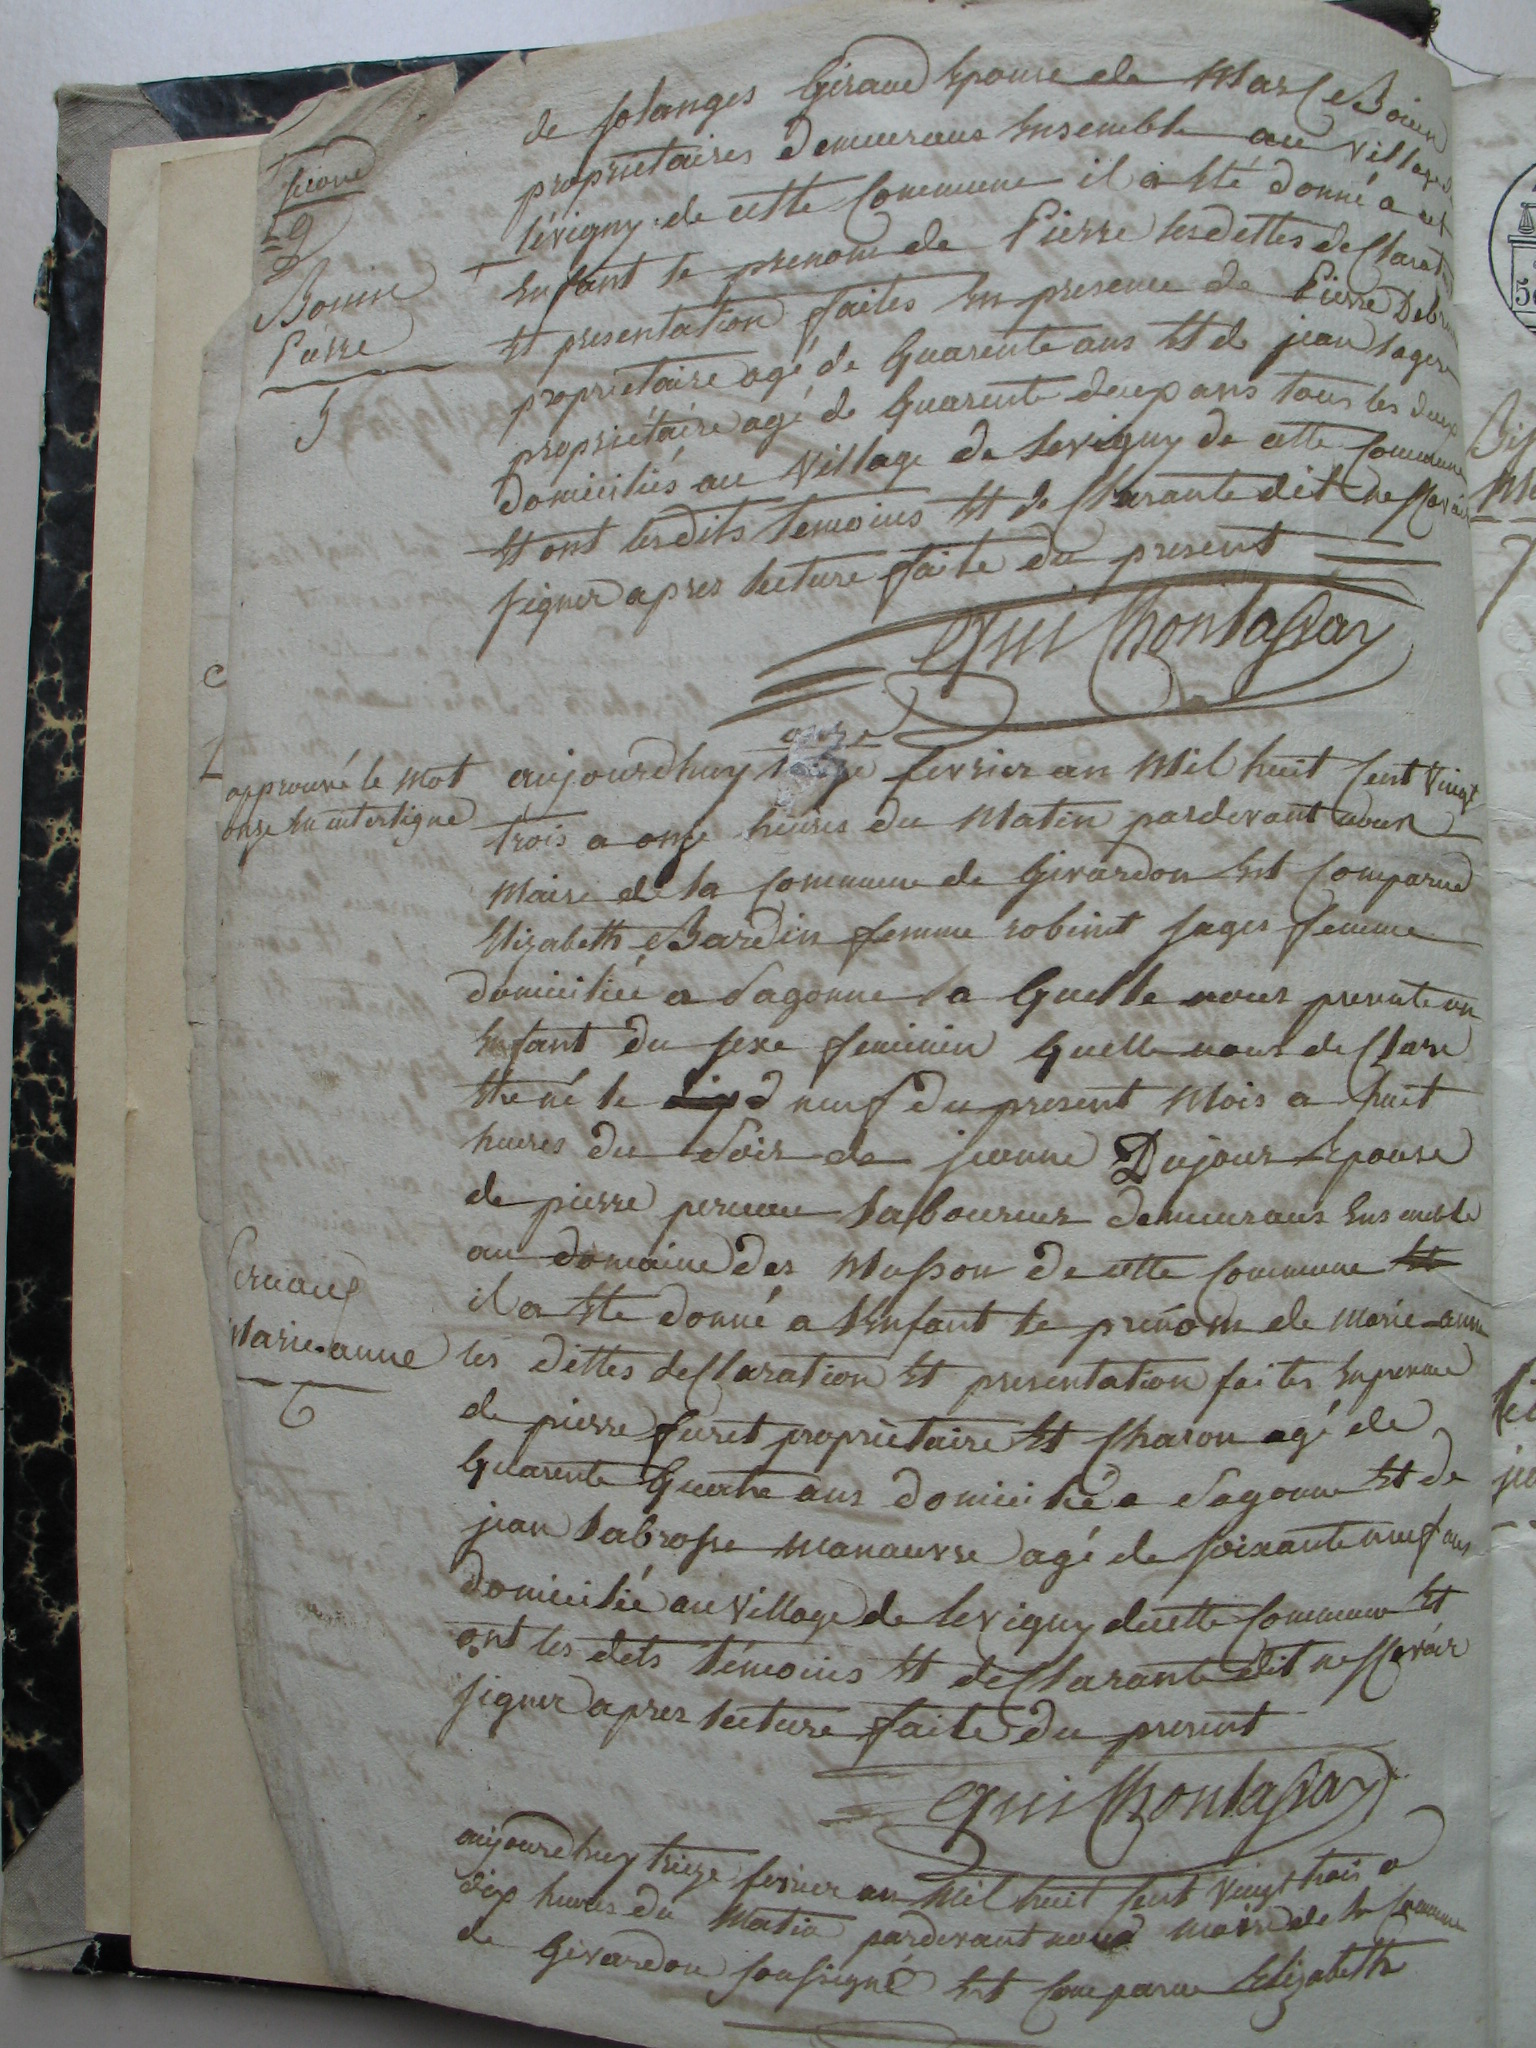 de solanges Giraud Epouse de Marc Boin
proprietaires demeurans Ensemble au village
Lévigny de cette Commune il a Eté donné a cet
Enfant le prenom de Pierre lesdettes declarat
Et presentation faites En presence de Pierre
propriétaire agé de quarente ans Et de jean
propriétaire agé de quarente deux ans tous les deux
domiciliés au village de Levigny de cette Commune
Et ont lesdits temoins Et declarante dit ne scavoir
signer apres lecture faite du present
Bonin
Pierre
5
onze
approuvé le mot
onze En interligne
aujourdhuy fevrier an Mil huit Cent vingt
trois a onze heures du Matin pardevant nous
Maire de la Commune de Givardon Est Comparue
Elizabeth Bardin femme robinet sages femme
domiciliée a Sagonne la quelle nous presente un
Enfant du sexe feminin quelle nous declare
Etre né le neuf du present Mois a huit
heures du Soir de jeanne Dujour Epouse
de pierre pernau laboureur demeurans Ensemble
au domaine des Musson de cette Commune
il a Ete donné a lEnfant le prénom de marie-anne
les dittes declaration Et presentation faites En presence
de pierre furet propriètaire Et Charon agé de
quarente quatre ans domicilié a Sagonne Et de
jean Labrosse manauvre agé de soixante neuf ans
domicilié au village de Levigny de cette Commune Et
ont les dets témoins Et declarante dit ne scavoir
signer apres lecture faite du present
Marie-anne
6
aujourdhuy treize fevrier an Mil huit Cent vingt trois a
dix heures du Matin pardevant nous maire de la Commune
de Givardon soussigné Est Comparue Elizabeth